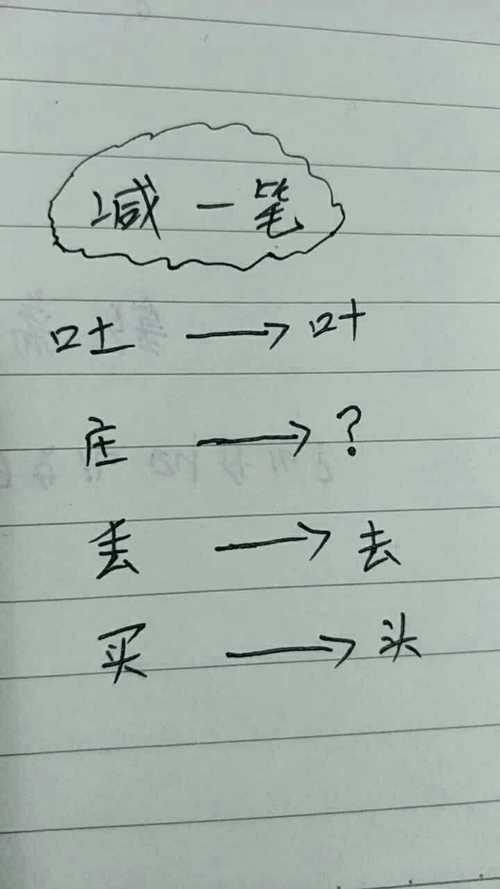 减一笔
吐 → 叶
庄 → ?
丢 → 去
买 → 头